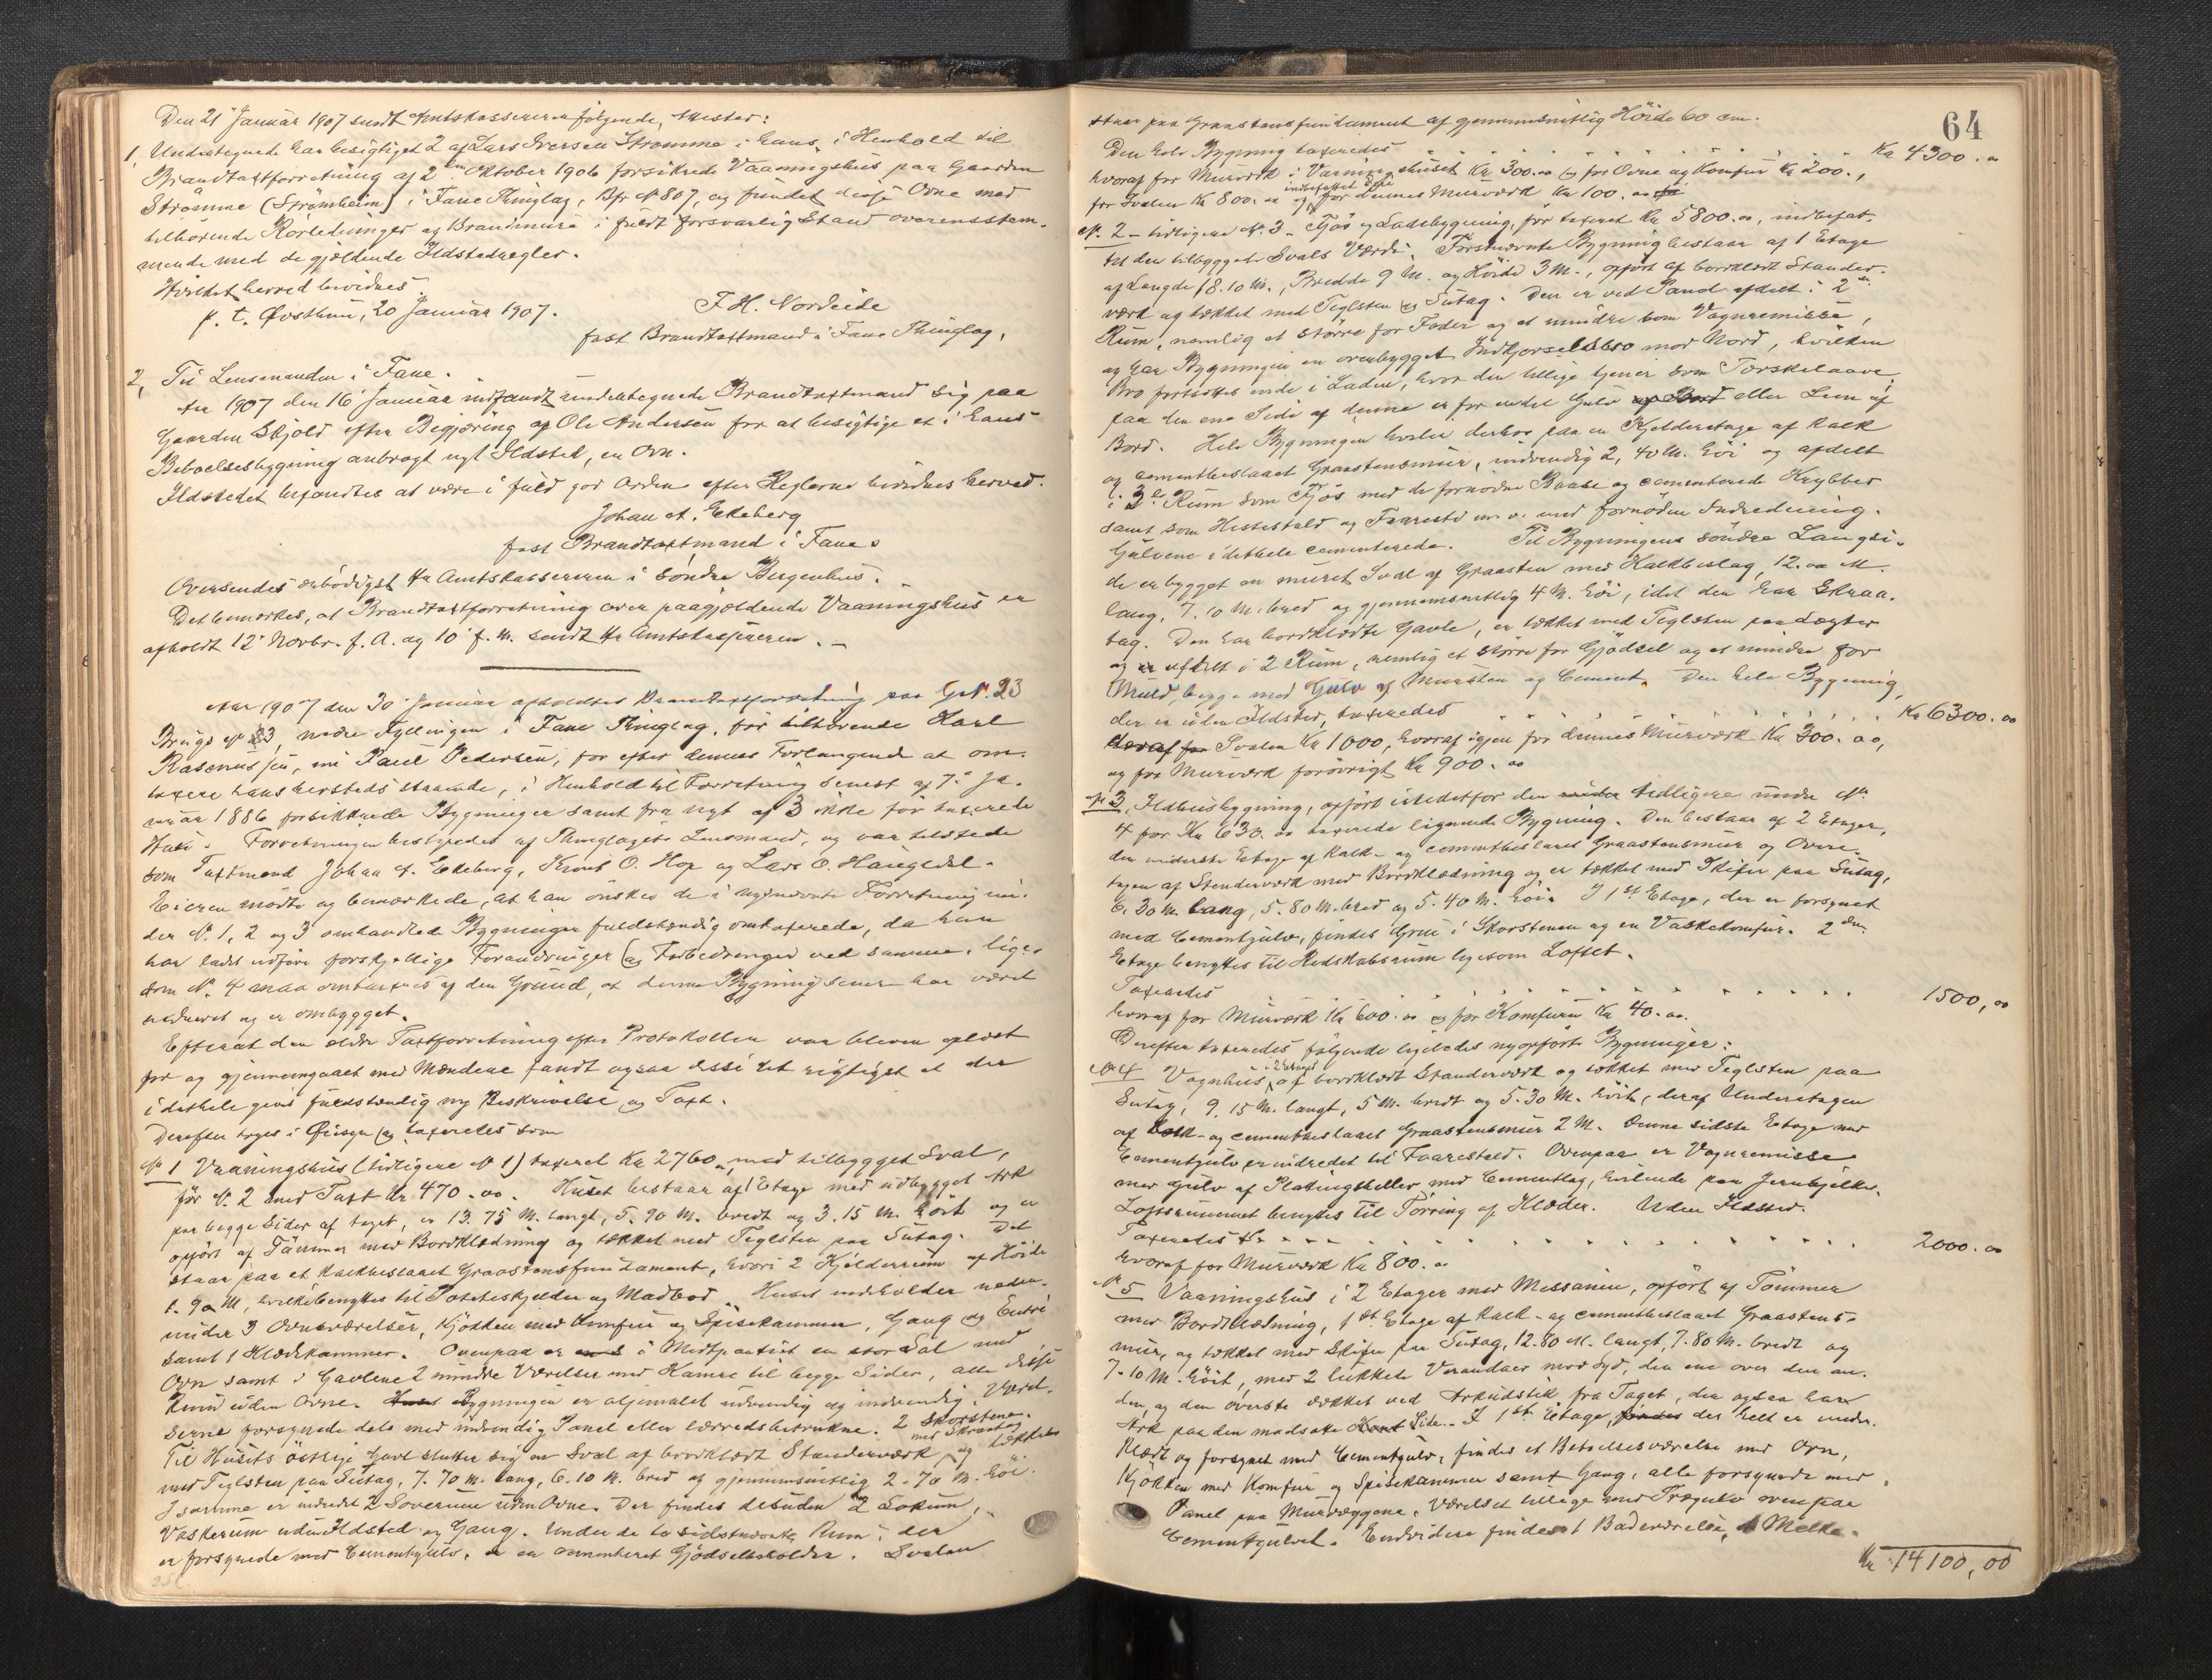 Den 21 Januar 1907 sendt Amtskassereren følgende Attester:
1, Undertegnede har besigtiget 2 af Lars Iversen Strømme i hans, i Henhold til
Brandtaxtforretning af 2den Oktober 1906 forsikrede Vaaningshus paa Gaarden
Strømme (Strømheim) i Fane Thinglag, Br. № 807, og fundet disse Ovne med
tilhørende Rørledninger og Brandmure i fuldt forsvarlig Stand overensstem-
mende med de gjældende Ildstedsregler.
Hvilket herved bevidnes.
p. t. Øvsthun, 20 Januar 1907.
T. H. Nordeide
fast Brandtaxtmand i Fane Thinglag.
2, Til Lensmanden i Fane.
Aar 1907 den 16 Januar indfandt undertegnede Brandtaxtmand sig paa
Gaarden Skjold efter Begjæring af Ole Andersen for at besigtige et i hans
Beboelsesbygning anbragt nyt Ildsted, en Ovn.
Ildstedet befandtes at være i fuld god Orden efter Reglerne bevidnes herved.
Johan A. Ekeberg
fast Brandtaxtmand i Fane.
Oversendes ærbødigst Hr Amtskassereren i Søndre Bergenhus.
Det bemærkes, at Brandtaxtforretning over paagjældende Vaaningshus er
afholdt 12 Novbr. f. A. og 10 f. M. sendt Hr Amtskassereren. -
Aar 1907 den 30 Januar afholdtes Brandtaxtforretning paa G. № 23
Brugs № 3, nedre Fyllingen i Fane Thinglag, før tilhørende Karl
Rasmussen, nu Paul Pedersen, for efter dennes Forlangende at om-
taxere hans hersteds staaende, i Henhold til Forretning senest af 7 Ja-
nuar 1886 forsikrede Bygninger samt fra nyt af 3 ikke før taxerede
Huse. Forretningen bestyredes af Thinglagets Lensmand, og var tilstede
som Taxtmænd Johan A. Ekeberg, Knut O. Hop og Lars O. Haugedal.
Eieren mødte og bemærkede, at han ønsker de i nysnævnte Forretning un-
der № 1, 2 og 3 omhandlede Bygninger fuldstændig omtaxerede, da han
har ladet udføre forskjellige Forandringer og Forbedringer ved samme, lige-
som № 4 maa omtaxeres af den Grund, at denne Bygning senere har været
nedrevet og er ombygget.
Efterat den ældre Taxtforretning efter Protokollen var bleven oplæst
for og gjennemgaaet med Mændene fandt ogsaa disse det rigtigst at der
i dethele gives fuldstændig ny Beskrivelse og Taxt.
Derefter toges i Øiesyn og taxeredes som
№ 1 Vaaningshus (tidligere № 1) taxeret Kr 2760, med tilbygget Sval,
før № 2 med Taxt Kr 470.00. Huset bestaar af 1 Etage med udbygget Ark
paa begge Sider af taget, er 13.75 M. langt, 5.90 M. bredt og 3.15 M. høit og er
opført af Tømmer med Bordklædning og tækket med Teglsten paa Sutag. Det
staar paa et kalkbeslaaet Graastensfundament, hvori 2 Kjelderrum af Høide
1.90 M, hvilke benyttes til Poteteskjelder og Madbod. Huset indeholder neden-
under 3 Ovnsværelser, Kjøkken med Komfur og Spisekammer, Gang og Entré
samt 1 Klædekammer. Ovenpaa er i Midtpartiet en stor Sal med
Ovn samt i Gavlene 2 mindre Værelser med Kamre til begge Sider, alle disse
Rum uden Ovne. Bygningen er oljemalet udvendig og indvendig. Værel-
serne forsynede dels med indvendig Panel eller lærredsbetrukne. 2 Skorstene.
Til Husets østlige Gavl slutter sig en Sval af bordklædt Standerværk med Skraatag og tækket
med Teglsten paa Sutag, 7.70 M. lang, 6.10 M. bred og gjennemsnitlig 2.70 M. høi.
I samme er indredet 2 Soverum uden Ovne. Der findes desuden 2 Lokum,
Vaskerum uden Ildsted og Gang. Under de to sidstnævnte Rum, der
er forsynede med Cementgulv, er en cementeret Gjødselbeholder. Svalen
64
staar paa Graastensfundament af gjennemsnitlig Høide 60 cm.
Den hele Bygning taxeredes . . . . . Kr 4300.00
hvoraf for Murværk i Vaaningshuset Kr 300.00 og for Ovne og Komfur Kr 200.,
for Svalen Kr 800.00 og indbefattet heri for dennes Murværk Kr 100.00
№ 2 - tidligere № 3 - Fjøs og Ladebygning, før taxeret Kr 5800.00, indbefat-
tet den tilbyggede Svals Værdi. Førstnævnte Bygning bestaar af 1 Etage
af Længde 18.10 M., Bredde 9 M. og Høide 3 M., opført af bordklædt Stander-
værk og tækket med Teglsten og Sutag. Den er ved Pand afdelt i 2
Rum, nemlig et større for Foder og et mindre som Vognremisse,
og har Bygningen en overbygget Indkjørselsbro mod Nord, hvilken
Bro fortsættes inde i Laden, hvor den tillige tjener som Torskelaave,
paa den ene Side af denne er for endel Gulv eller Lem af
Bord. Hele Bygningen hviler derhos paa en Kjelderetage af kalk
og cementbeslaaet Graastensmur, indvendig 2,40 M. høi og afdelt
i 3 Rum som Fjøs med de fornødne Baase og cementerede Krybber
samt som Hestestald og Faaresti m. v. med fornøden Indredning.
Gulvene i dethele cementerede. Til Bygningens søndre Langsi-
de er bygget en muret Sval af Graasten med Kalkbeslag, 12.00 M.
lang, 7.10 M. bred og gjennemsnitlig 4 M. høi, idet den har Skraa-
tag. Den har bordklædte Gavle, er tækket med Teglsten paa Lægter
og er afdelt i 2 Rum, nemlig et større for Gjødsel og et mindre for
Muld, begge med Gulv af Mursten og Cement. Den hele Bygning,
der er uden Ildsted, taxeredes . . . . . Kr 6300.00
deraf for Svalen Kr 1000, hvoraf igjen for dennes Murværk Kr 300.00,
og for Murværk forøvrigt Kr 900.00
№ 3, Ildhusbygning, opført istedetfor den tidligere under №
4 for Kr 630.00 taxerede lignende Bygning. Den bestaar af 2 Etager,
den underste Etage af kalk- og cementbeslaaet Graastensmur og Overe-
tagen af Stenderværk med Bordklædning og er tækket med Skifer paa Sutag,
6.30 M. lang, 5.80 M. bred og 5.40 M. høi. I 1st Etage, der er forsynet
med Cementgulv, findes Grue i Skorstenen og en Vaskekomfur. 2den
Etage benyttes til Redskabsrum ligesom Loftet.
Taxeredes . . . . . 1500,00
hvoraf for Murværk Kr 600.00 og for Komfuren Kr 40.00.
Derefter taxeredes følgende ligeledes nyopførte Bygninger:
№ 4 Vognhus i 2 Etager af bordklædt Standerværk og tækket med Teglsten paa
Sutag, 9.15 M. langt, 5 M. bredt og 5.30 M. høit, deraf Underetagen
af kalk- og cementbeslaaet Graastensmur 2 M. Denne sidste Etage med
Cementgulv er indredet til Faarestald. Ovenpaa er Vognremisse
med Gulv af Plattingsheller med Cementlag, hvilende paa Jernbjelker.
Loftsrummet benyttes til Tørring af Klæder. Uden Ildsted.
Taxeredes Kr . . . . . 2000.00
hvoraf for Murværk Kr 800.00
№ 5 Vaaningshus i 2 Etager med Messanin, opført af Tømmer
med Bordklædning, 1st Etage af kalk- og cementbeslaaet Graastens-
mur, og tækket med Skifer paa Sutag, 12.80 M. langt, 7.80 M. bredt og
7.10 M. høit, med 2 lukkede Verandaer mod Syd, den ene over den an-
den, og den øverste dækket ved Arkudstik fra Taget, der ogsaa har
Ark paa den modsatte Side. I 1st Etage, der helt er under-
klædt og forsynet med Cementgulv, findes et Beboelsesværelse med Ovn,
Kjøkken med Komfur og Spisekammer samt Gang, alle forsynede med
Panel paa Murvæggene. Værelset tillige med Trægulv ovenpaa
Cementgulvet. Endvidere findes 1 Badeværelse, 1 Melke-
Kr 14100,00